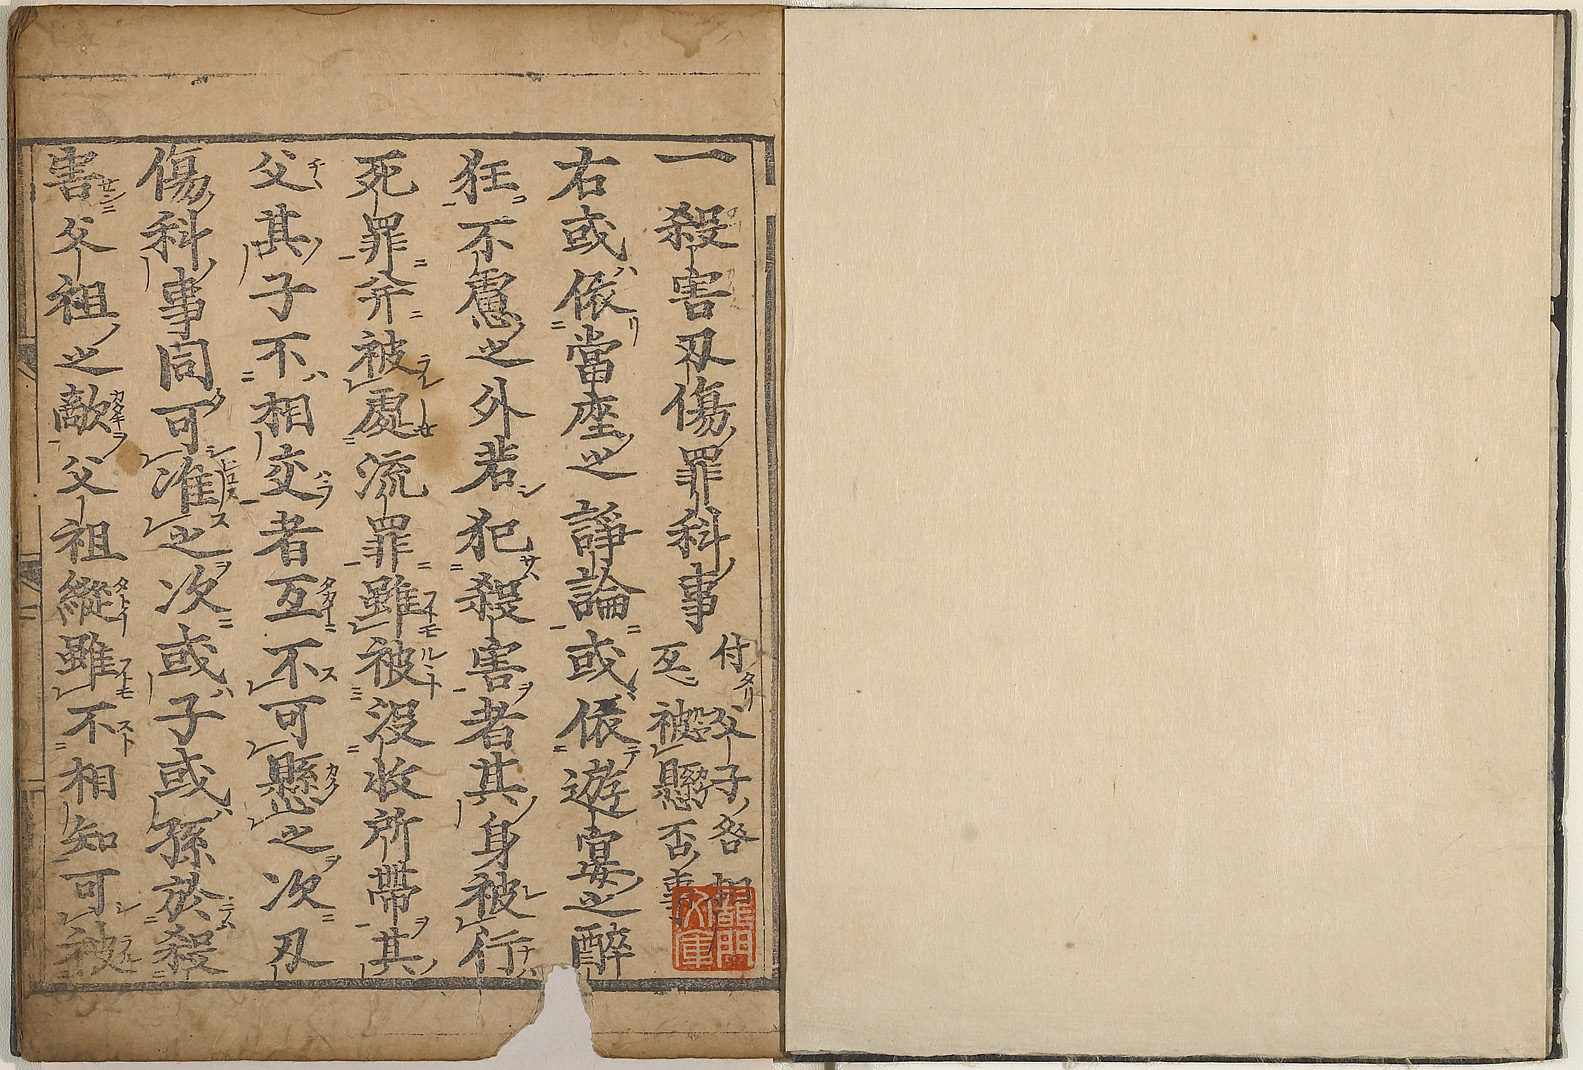 一殺害刄傷罪科事 付父子各相
互被懸否事
右或依當座之諍論或依遊宴之醉
狂不慮之外若犯殺害者其身被行
死罪并被處流罪雖被没收所帶其
父其子不相交者互不可懸之次刄
傷科事同可准之次或子或孫於殺
害父祖之敵父祖縱雖不相知可被